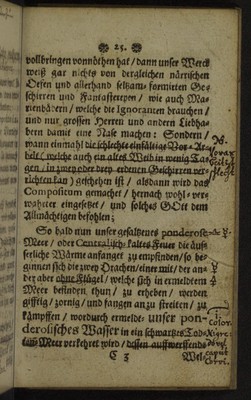 25.
vollbringen vonnöthen hat / dann unser Werck
weiß gar nichts von dergleichen närrischen
Oefen und allerhand seltzam-formirten Ge-
schirren und Fantastereyen / wie auch Ma-
rienbädern / welche die Ignoranten brauchen /
und nur grossen Herren und andern Liebha-
bern damit eine Nase machen: Sondern /
wann einmahl die schlechte einfältige Vor-Ar-
beit (welche auch ein altes Weib in wenig Ta-
gen / in zwey oder drey erdenen Geschirren ver-
richten kan) geschehen ist / alsdann wird das
Compositum gemachet / hernach wohl-ver-
wahrter eingesetzet / und solches GOtt dem
Allmächtigen befohlen;
So bald nun unser gesaltzenes ponderose-
Meer / oder Centralisch-kaltes Feuer die äus-
serliche Wärme anfanget zu empfinden / so be-
ginnen sich die zwey Drachen / einer mit / der an-
der aber ohne Flügel / welche sich in ermeldtem
Meer befinden thun / zu erheben / werden
gifftig / zornig / und fangen an zu streiten / zu
kämpffen / wordurch ermeldt-unser pon-
derosisches Wasser in ein schwartzes Tod-
ten-Meer verkehret wird / dessen auffwerffende
C 3
Wel-
NB.
color.
caput
corvi.